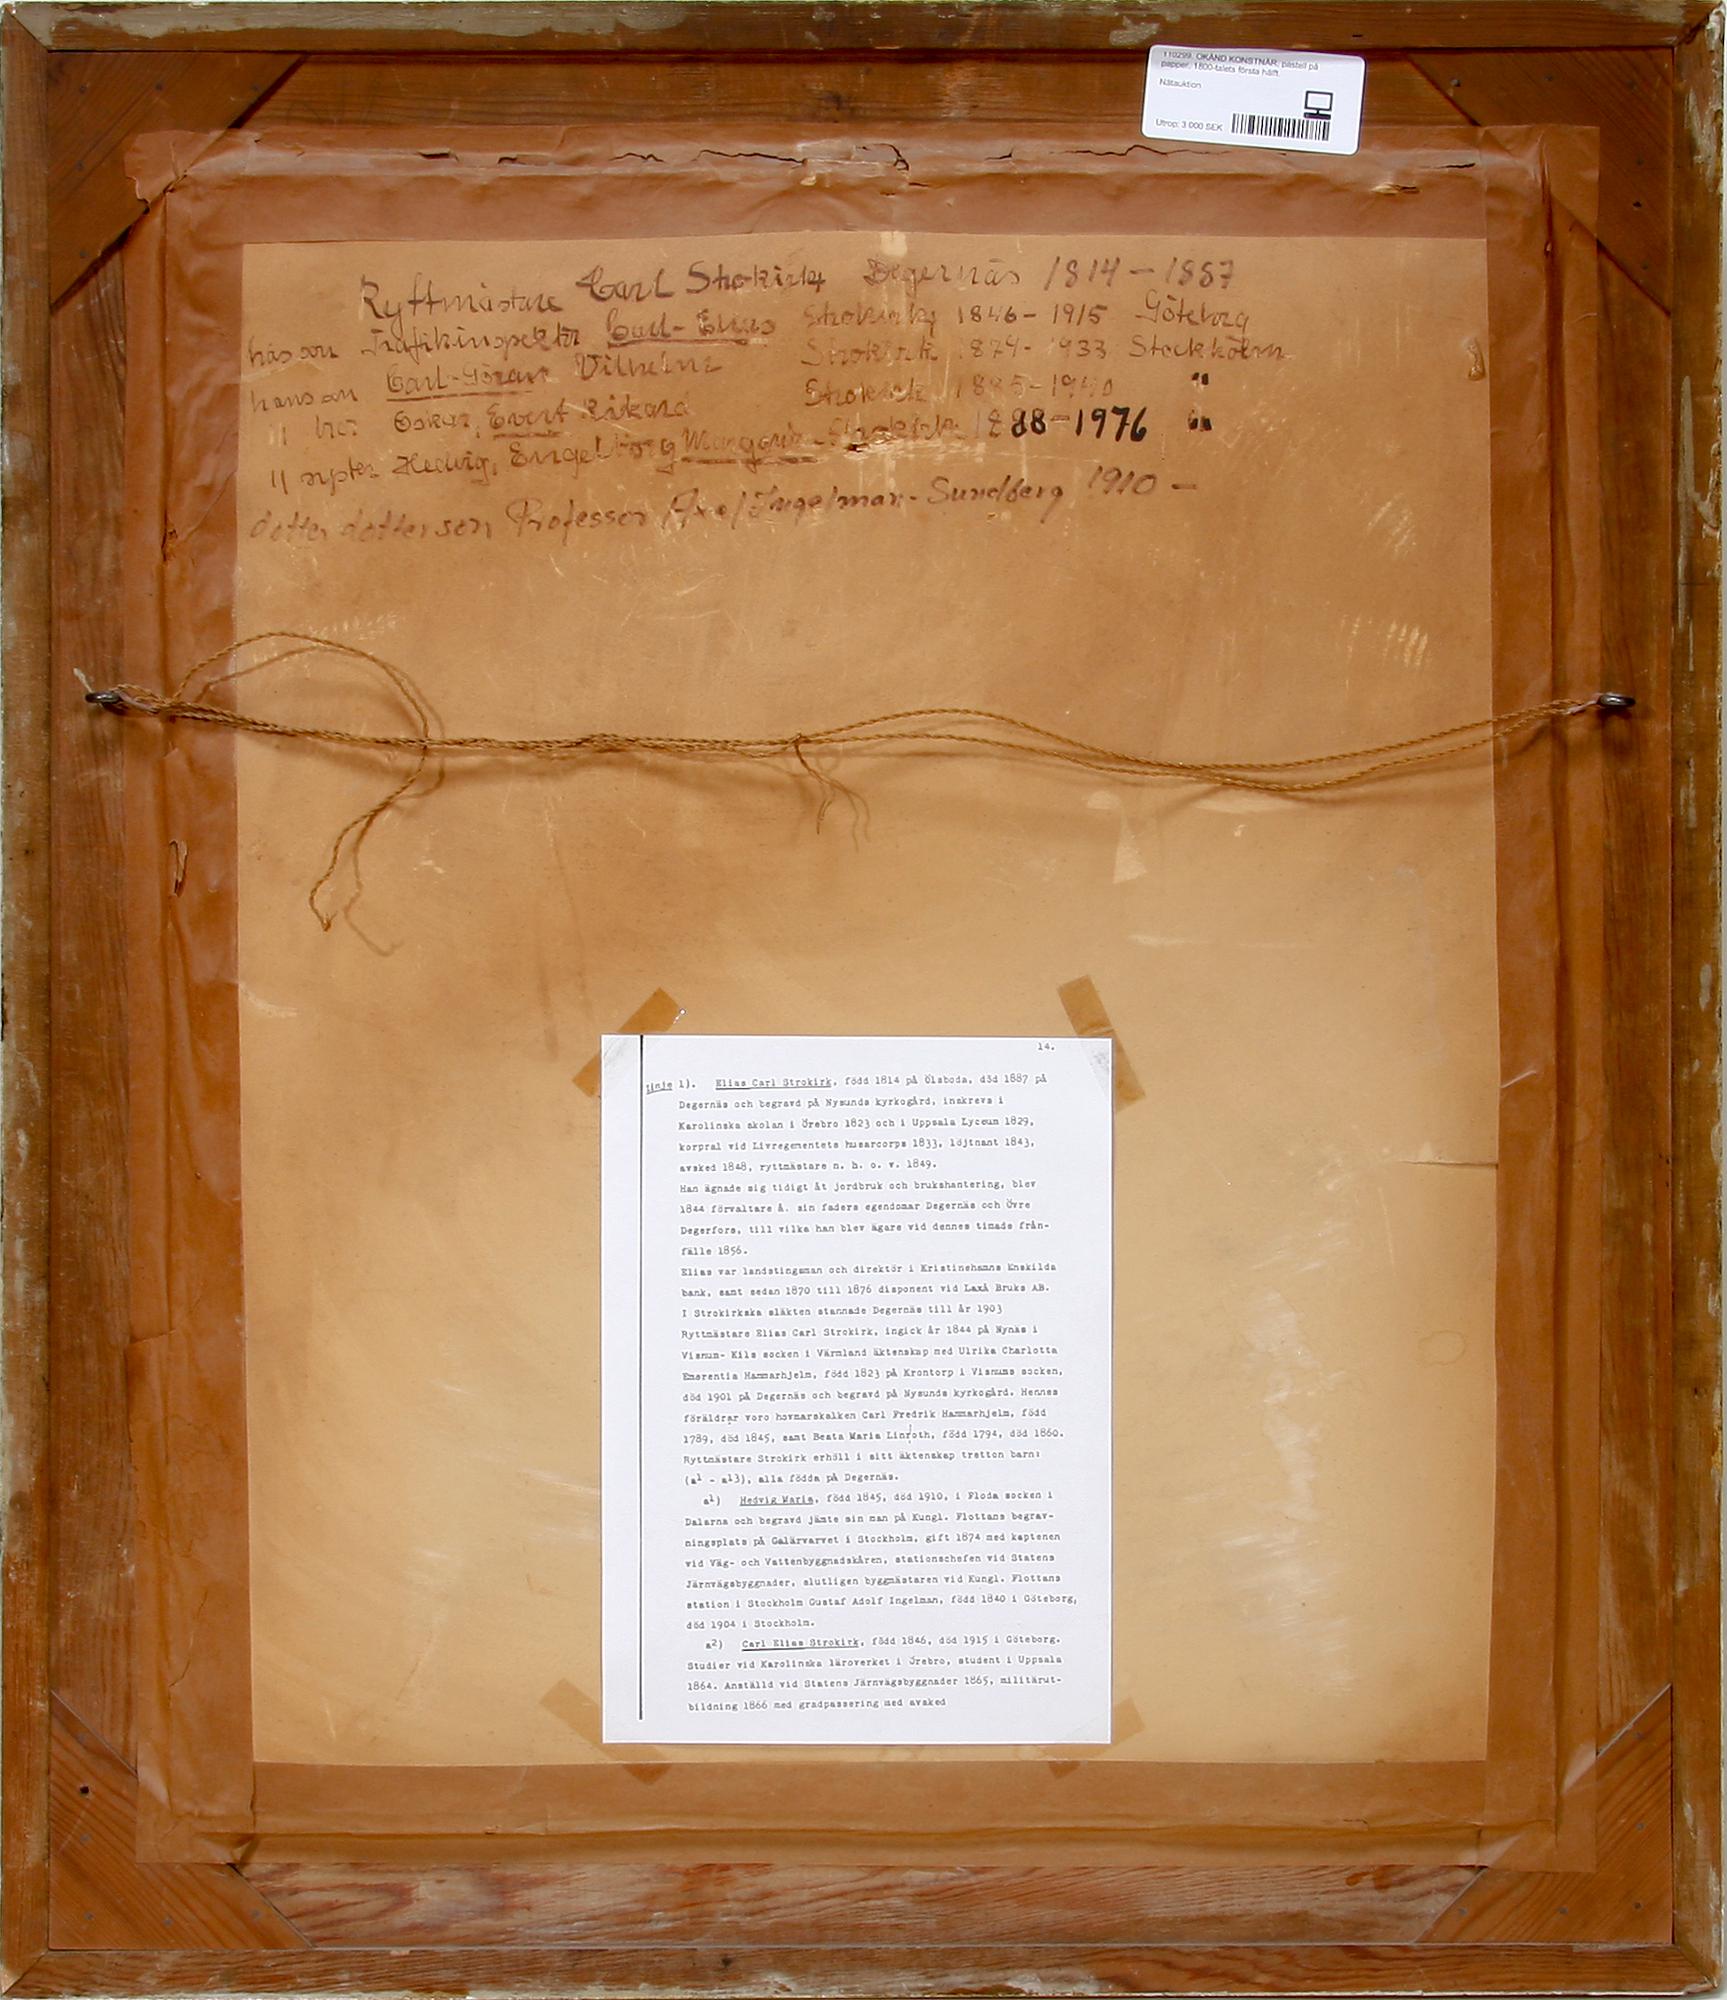 110299. OKÄND KONSTNÄR, pastell på
papper, 1800-talets första hälft.
Nätauktion
Utrop: 3 000 SEK
Ryttmästare Carl Strokirk Degernäs 1814 - 1887
hans son Trafikinspektör Carl-Elias Strokirk 1846 - 1915 Göteborg
hans son Carl-Göran Vilhelm Strokirk 1874 - 1933 Stockholm
" bror Oskar, Evert Rikard Strokirk 1885 - 1940 "
" syster Hedvig, Engelborg Margareta Strokirk 1888 - 1976 "
dotter dotter son Professor Axel Ingelman-Sundberg 1910 -
14.
Linje 1). Elias Carl Strokirk, född 1814 på Ölsboda, död 1887 på
Degernäs och begravd på Nysunds kyrkogård, inskrevs i
Karolinska skolan i Örebro 1823 och i Uppsala Lyceum 1829,
korpral vid Livregementets husarcorps 1833, löjtnant 1843,
avsked 1848, ryttmästare n. h. o. v. 1849.
Han ägnade sig tidigt åt jordbruk och brukshantering, blev
1844 förvaltare å. sin faders egendomar Degernäs och Övre
Degerfors, till vilka han blev ägare vid dennes timade från-
fälle 1856.
Elias var landstingsman och direktör i Kristinehamns Enskilda
bank, samt sedan 1870 till 1876 disponent vid Laxå Bruks AB.
I Strokirkska släkten stannade Degernäs till år 1903
Ryttmästare Elias Carl Strokirk, ingick år 1844 på Nynäs i
Visnum- Kils socken i Värmland äktenskap med Ulrika Charlotta
Emerentia Hammarhjelm, född 1823 på Krontorp i Visnums socken,
död 1901 på Degernäs och begravd på Nysunds kyrkogård. Hennes
föräldrar voro hovmarskalken Carl Fredrik Hammarhjelm, född
1789, död 1845, samt Beata Maria Linroth, född 1794, död 1860.
Ryttmästare Strokirk erhöll i sitt äktenskap tretton barn:
(a1 - a13), alla födda på Degernäs.
a1) Hedvig Maria, född 1845, död 1910, i Floda socken i
Dalarna och begravd jämte sin man på Kungl. Flottans begrav-
ningsplats på Galärvarvet i Stockholm, gift 1874 med kaptenen
vid Väg- och Vattenbyggnadskåren, stationschefen vid Statens
Järnvägsbyggnader, slutligen byggmästaren vid Kungl. Flottans
station i Stockholm Gustaf Adolf Ingelman, född 1840 i Göteborg,
död 1904 i Stockholm.
a2) Carl Elias Strokirk, född 1846, död 1915 i Göteborg.
Studier vid Karolinska läroverket i Örebro, student i Uppsala
1864. Anställd vid Statens Järnvägsbyggnader 1865, militärut-
bildning 1866 med gradpassering med avsked